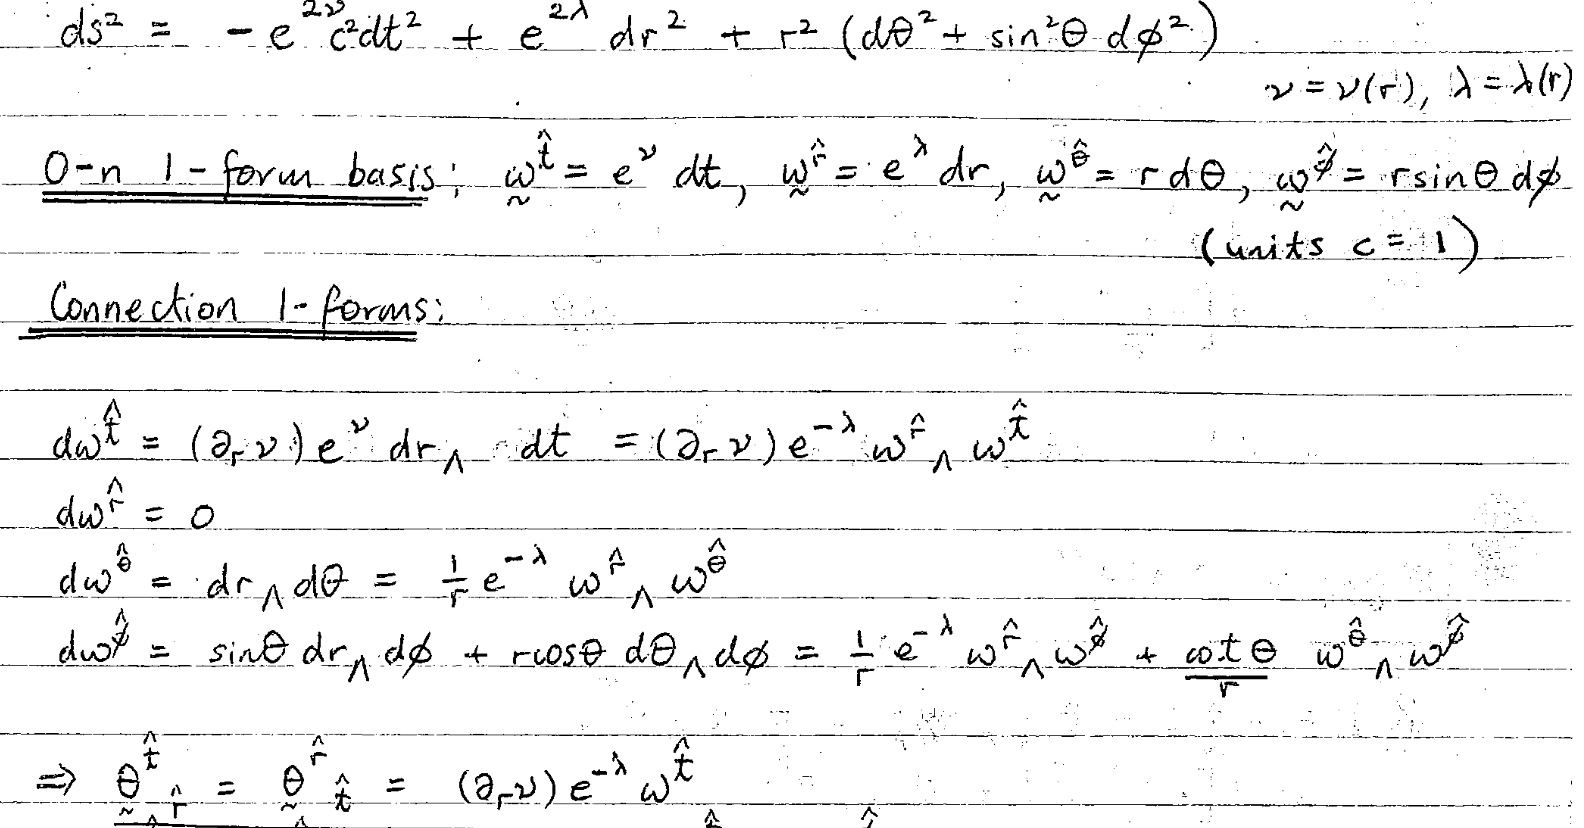 ds² = - e^{2ν} c²dt² + e^{2λ} dr² + r² (dθ² + sin²θ dϕ²)
ν = ν(r), λ = λ(r)
O-n 1-form basis: ω^{t̂} = e^ν dt, ω^{r̂} = e^λ dr, ω^{θ̂} = r dθ, ω^{ϕ̂} = r sinθ dϕ
(units c = 1)
Connection 1-forms:
dω^{t̂} = (∂_r ν) e^ν dr ∧ dt = (∂_r ν) e^{-λ} ω^{r̂} ∧ ω^{t̂}
dω^{r̂} = 0
dω^{θ̂} = dr ∧ dθ = 1/r e^{-λ} ω^{r̂} ∧ ω^{θ̂}
dω^{ϕ̂} = sinθ dr ∧ dϕ + r cosθ dθ ∧ dϕ = 1/r e^{-λ} ω^{r̂} ∧ ω^{ϕ̂} + cot θ/r ω^{θ̂} ∧ ω^{ϕ̂}
⇒ θ^{t̂}_{r̂} = θ^{r̂}_{t̂} = (∂_r ν) e^{-λ} ω^{t̂}